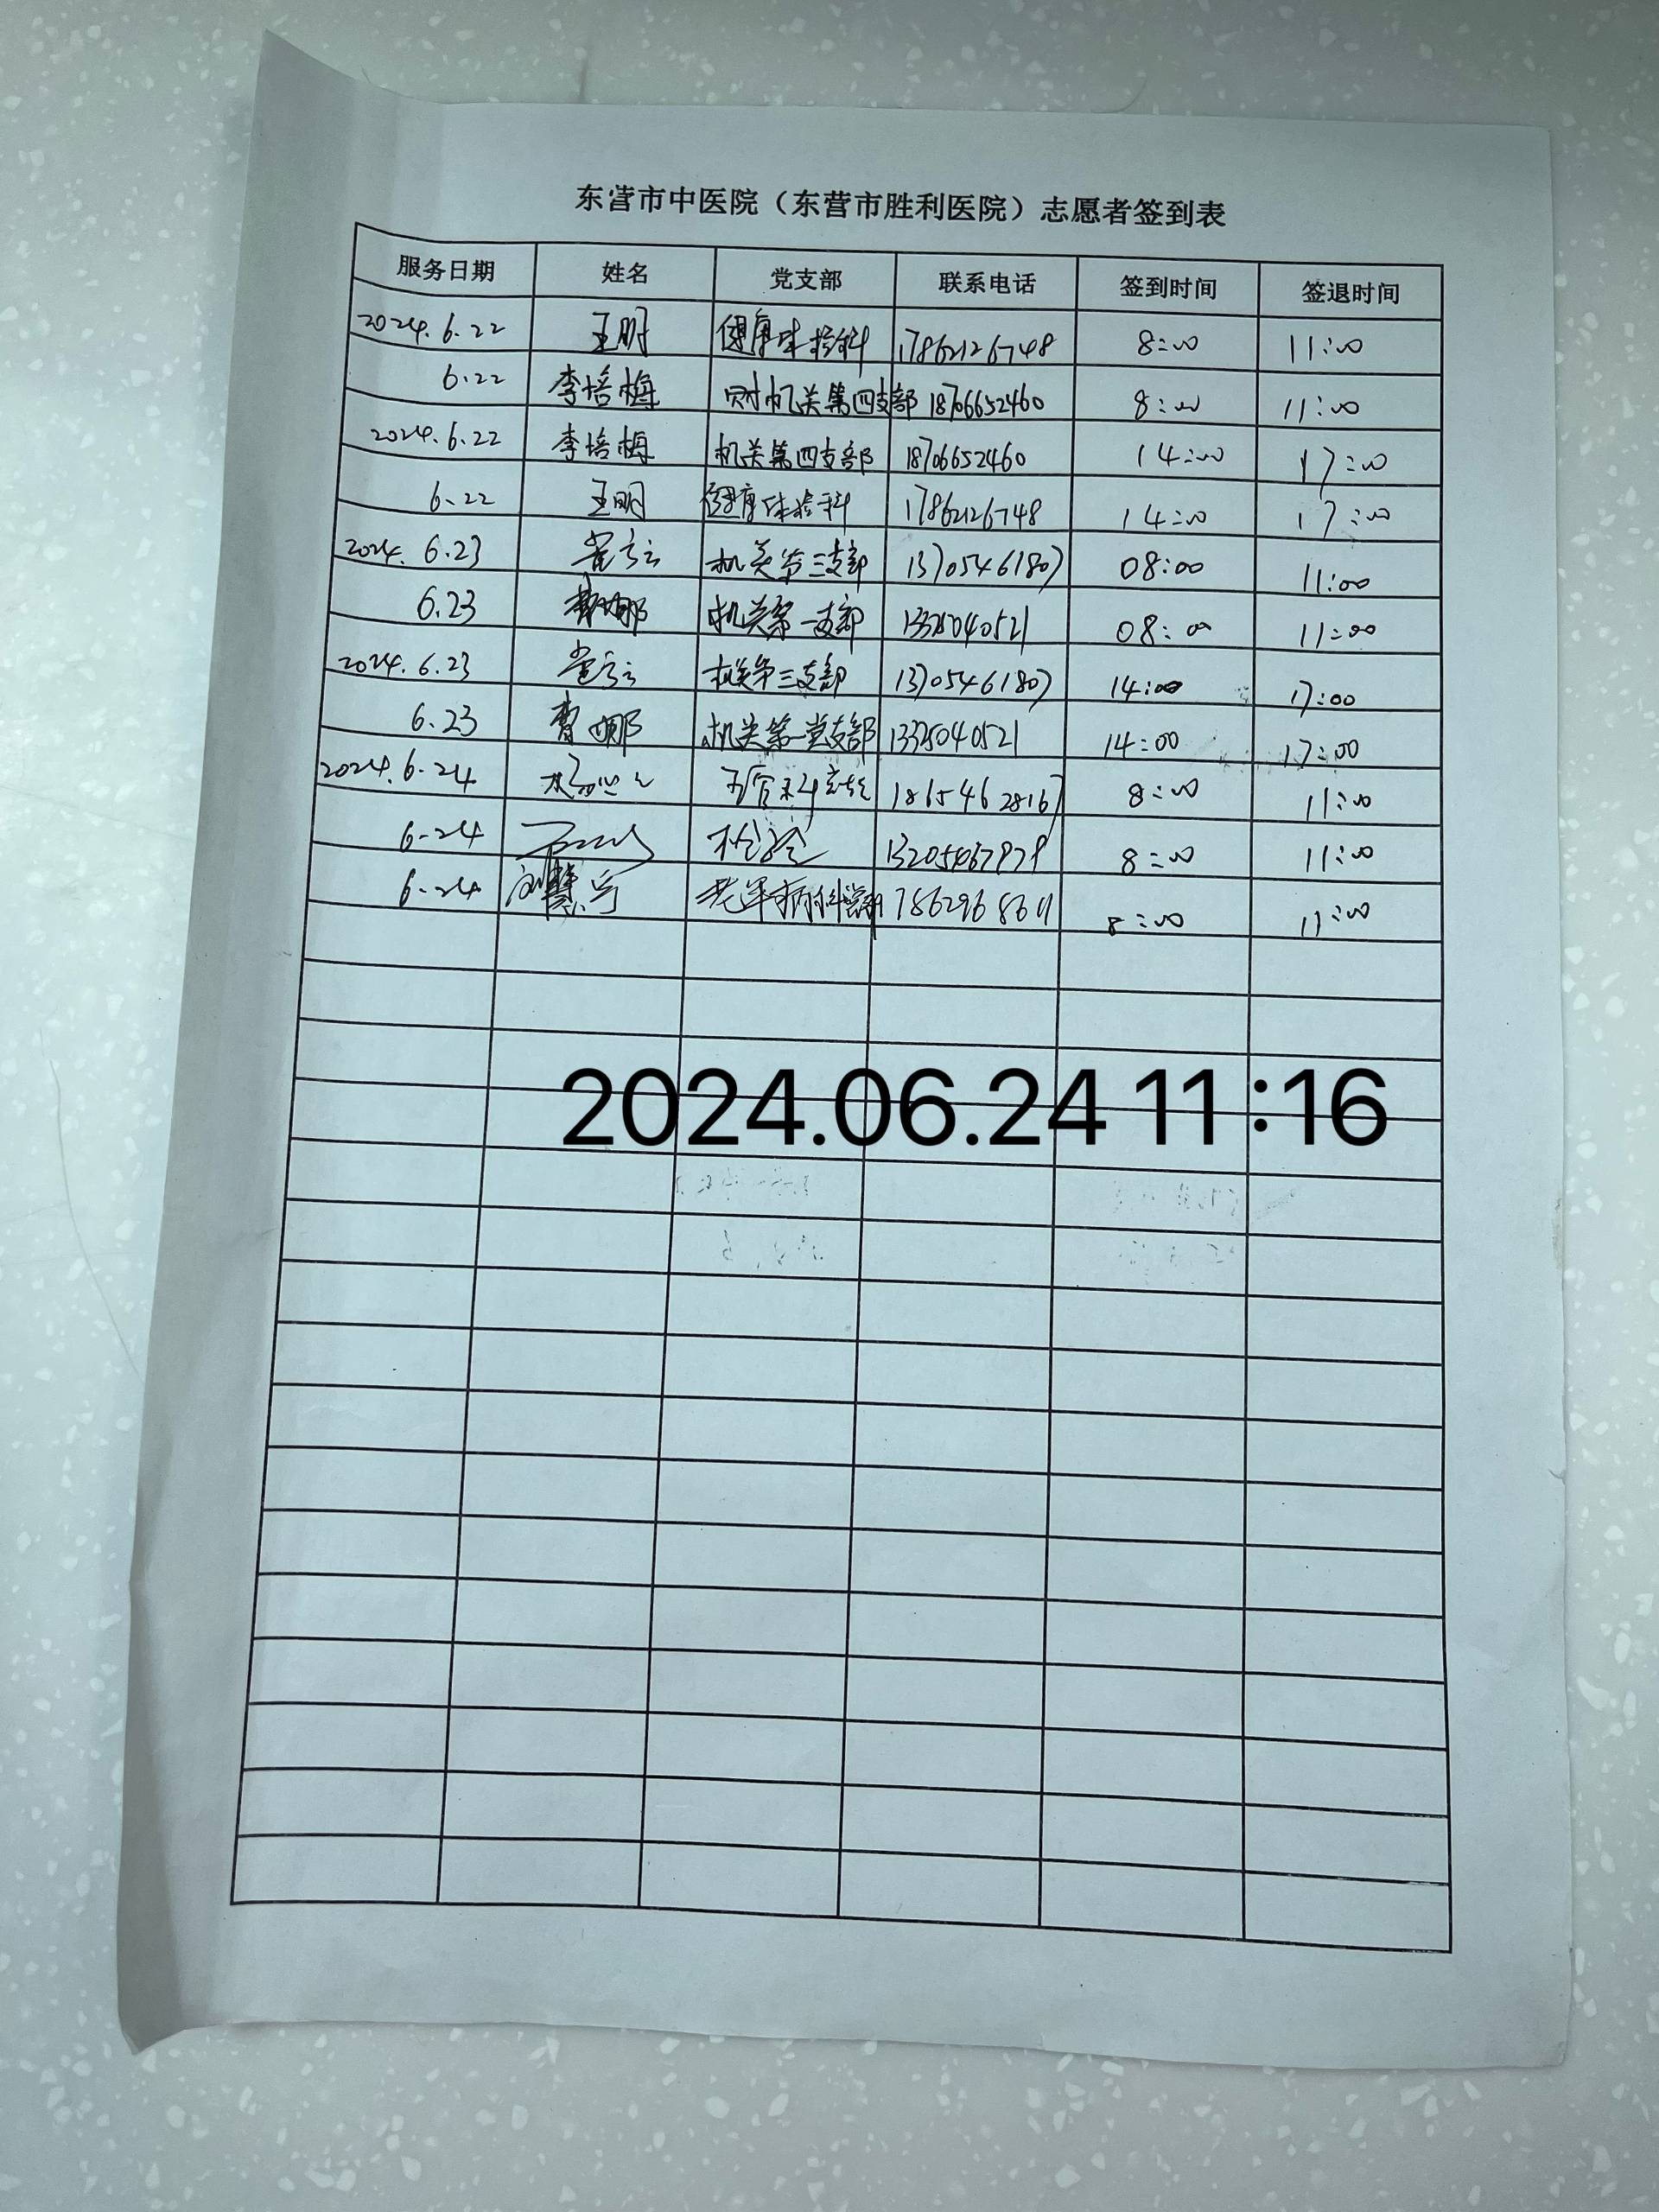 东营市中医院（东营市胜利医院）志愿者签到表
服务日期 姓名 党支部 联系电话 签到时间 签退时间
2024.6.22 王明 健康体检科 17862126748 8:00 11:00
6.22 李培梅 财机关第四支部 18706652460 8:00 11:00
2024.6.22 李培梅 机关第四支部 18706652460 14:00 17:00
6.22 王明 健康体检科 17862126748 14:00 17:00
2024.6.23 机关第三支部 13705461807 08:00 11:00
6.23 曹娜 机关第一支部 13325040521 08:00 11:00
2024.6.23 机关第三支部 13705461807 14:00 17:00
6.23 曹娜 机关第一党支部 13325040521 14:00 17:00
2024.6.24 五官科 18654628167 8:00 11:00
6-24 检验 8:00 11:00
6-24 老年病科 17862968611 8:00 11:00
2024.06.24 11:16